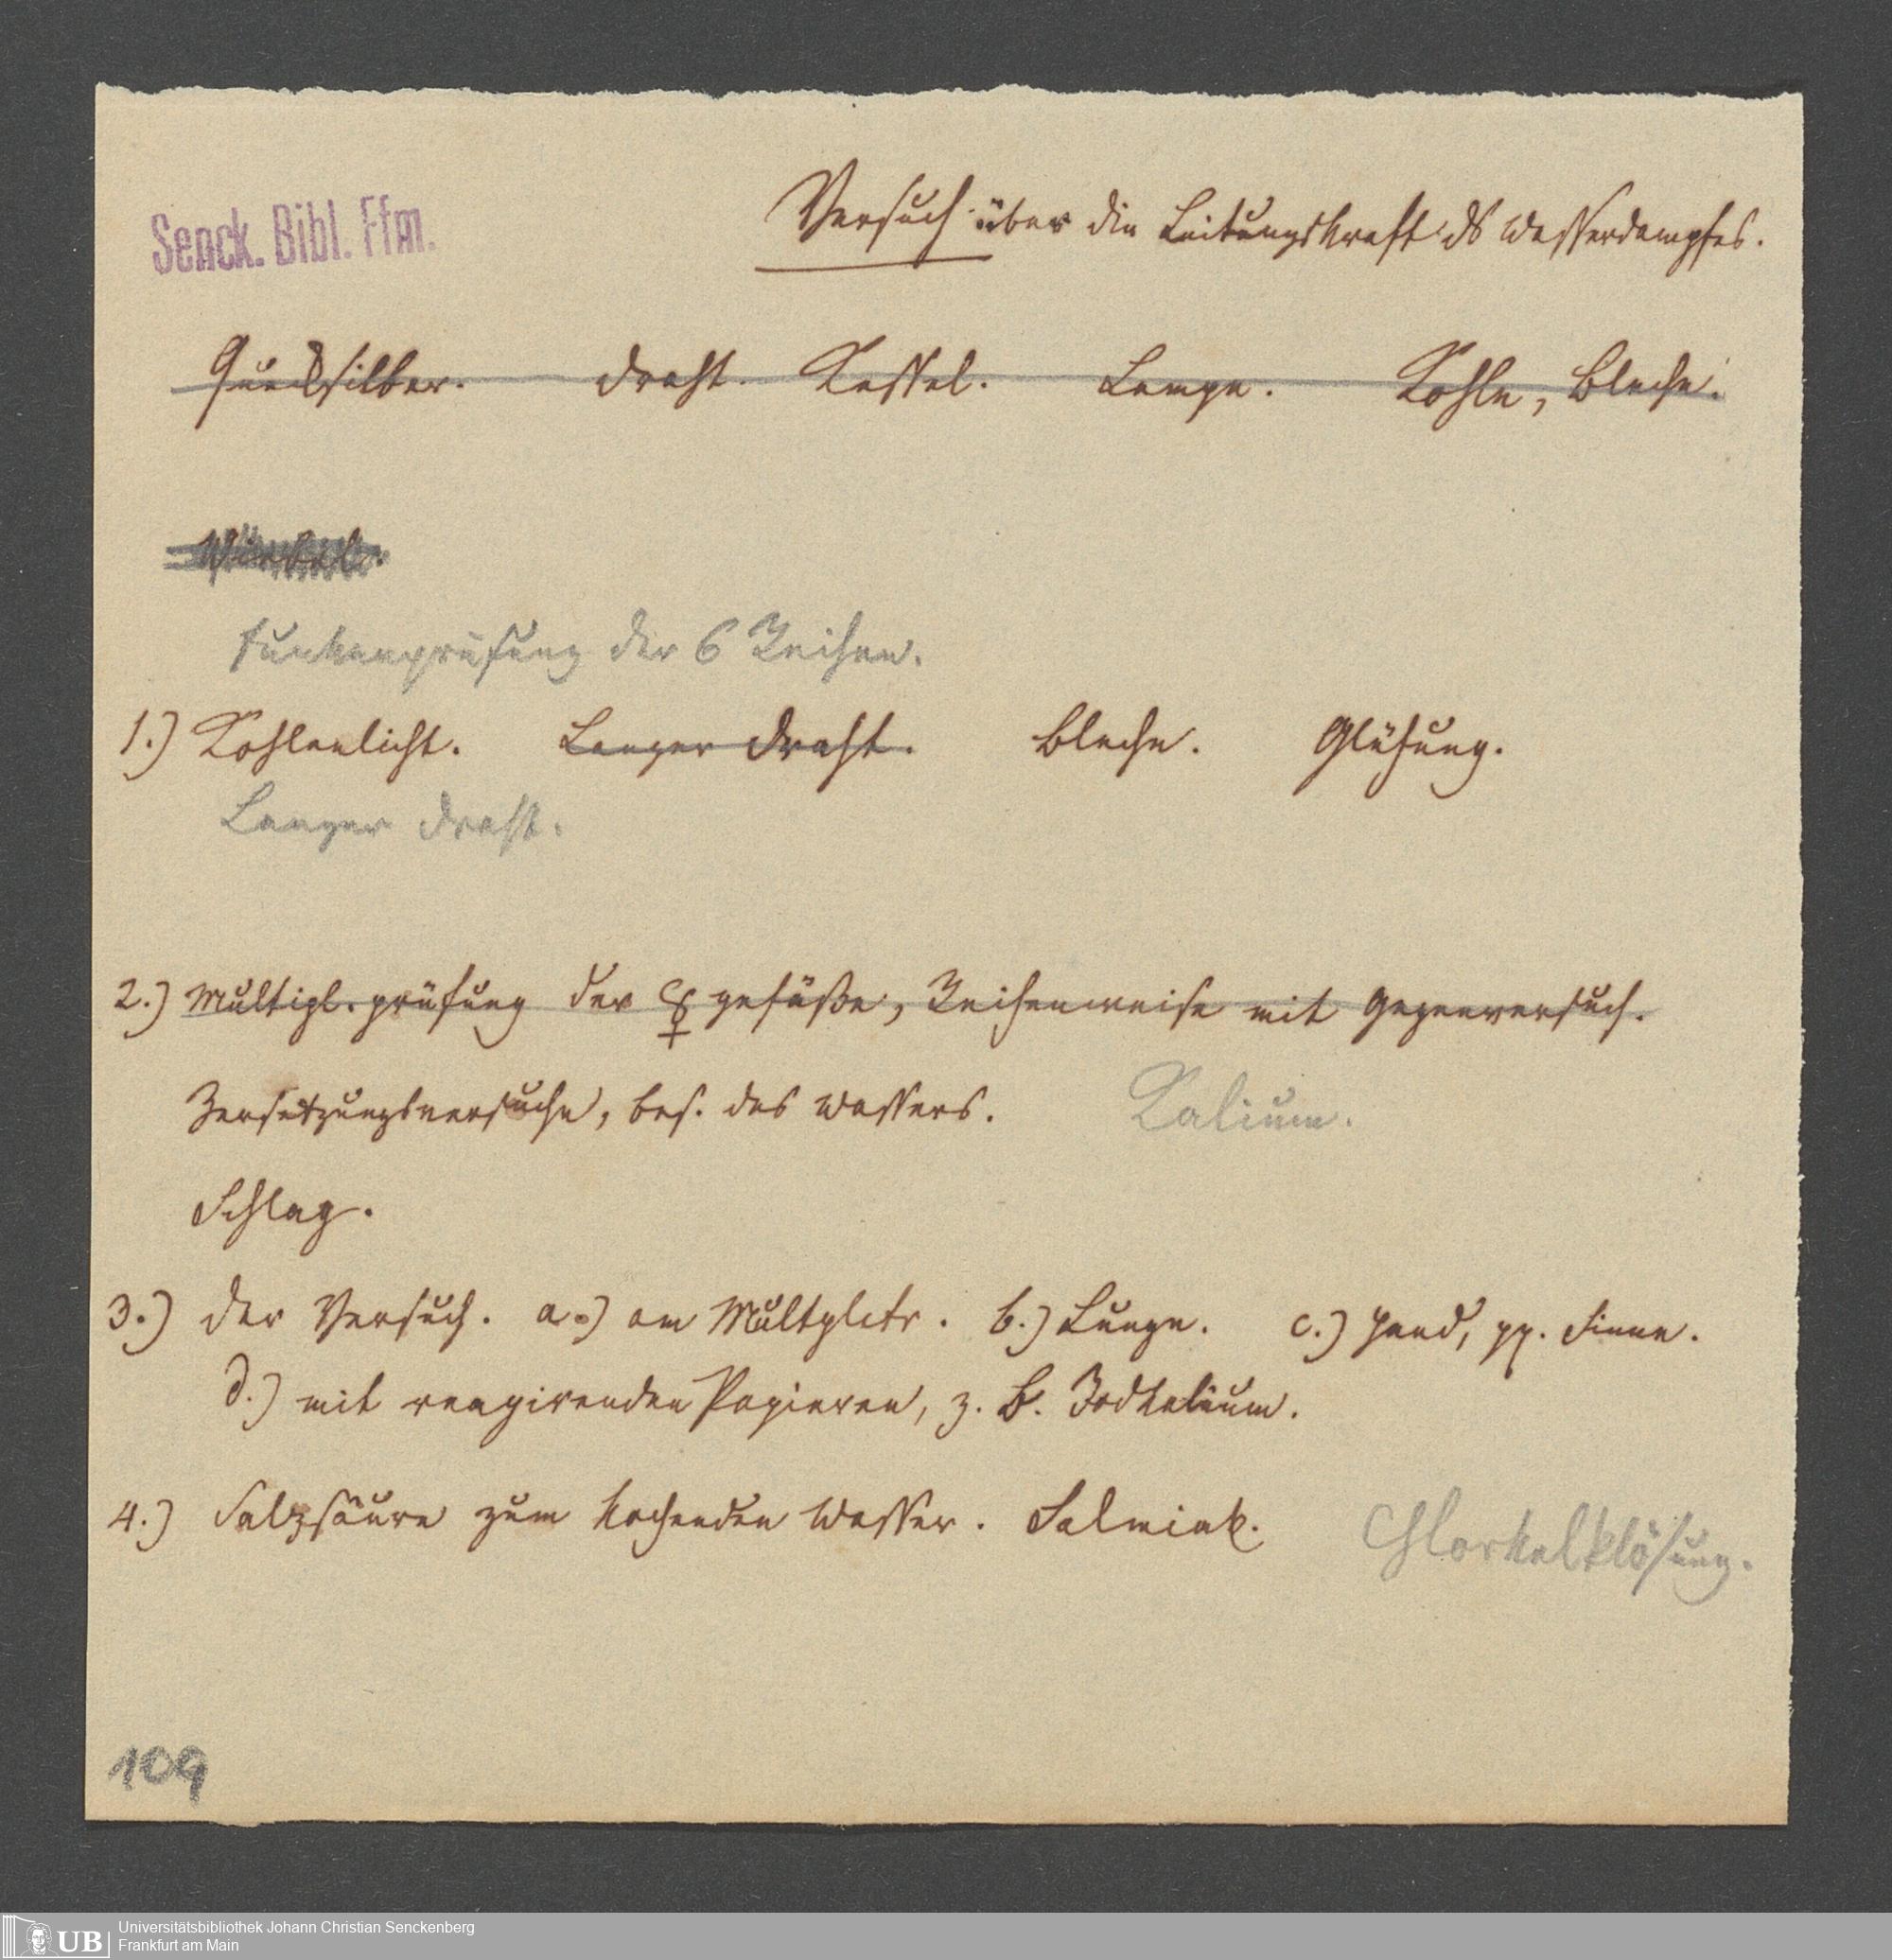 Senck. Bibl. Ffm.
Versuch über die Leitungskraft ds Wasserdampfes.
Quecksilber. Draht. Kessel. Lampe. Kohle, Bleche.
Funkenprüfung der 6 Reihen.
1.) Kohlenlicht. Langer Draht. Bleche. Glühung.
Langer Draht.
2.) Multipl. prüfung der ☿ gefäße, Reihenweise mit Gegenversuch.
Zersetzungsversuche, bes. des Wassers. Kalium.
Schlag.
3.) Der Versuch. a.) am Multplctr. b.) Zunge. c.) Hand, pp. Sinne.
d.) mit reagirenden Papieren, z. B. Jodkalium.
4.) Salzsäure zum kochenden Wasser. Salmiak. Chlorkalklösung.
109
UB
Universitätsbibliothek Johann Christian Senckenberg
Frankfurt am Main